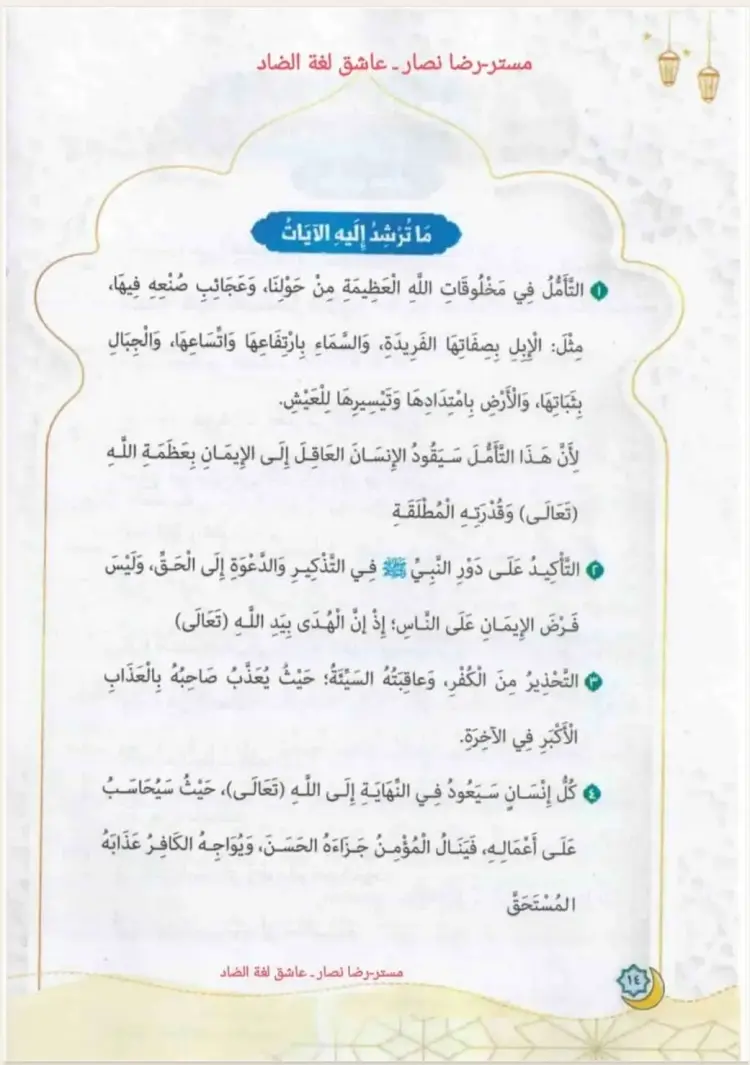 مستر-رضا نصار ـ عاشق لغة الضاد
مَا تُرْشِدُ إِلَيهِ الآيَاتُ
١ التَّأَمُّلُ فِي مَخْلُوقَاتِ اللَّهِ الْعَظِيمَةِ مِنْ حَوْلِنَا، وَعَجَائِبِ صُنْعِهِ فِيهَا،
مِثْلَ: الْإِبِلِ بِصِفَاتِهَا الفَرِيدَةِ، وَالسَّمَاءِ بِارْتِفَاعِهَا وَاتِّسَاعِهَا، وَالْجِبَالِ
بِثَبَاتِهَا، وَالْأَرْضِ بِامْتِدَادِهَا وَتَيْسِيرِهَا لِلْعَيْشِ.
لِأَنَّ هَـذَا التَّأَمُّـلَ سَـيَقُودُ الإِنْسَـانَ العَاقِـلَ إِلَـى الإِيمَـانِ بِعَظَمَـةِ اللَّـهِ
(تَعَالَـى) وَقُدْرَتِـهِ الْمُطْلَقَـةِ
٢ التَّأْكِيـدُ عَلَـى دَوْرِ النَّبِـيِّ ﷺ فِـي التَّذْكِيـرِ وَالدَّعْـوَةِ إِلَى الْحَـقِّ، وَلَيْـسَ
فَـرْضَ الإِيمَـانِ عَلَى النَّـاسِ؛ إِذْ إِنَّ الْهُـدَى بِيَدِ اللَّـهِ (تَعَالَى)
٣ التَّحْذِيرُ مِنَ الْكُفْرِ، وَعاقِبَتُهُ السَيِّئَةُ؛ حَيْثُ يُعَذَّبُ صَاحِبُهُ بِالْعَذَابِ
الْأَكْبَرِ فِي الآخِرَةِ.
٤ كُلُّ إِنْسَـانٍ سَـيَعُودُ فِـي النِّهَايَةِ إِلَـى اللَّـهِ (تَعَالَى)، حَيْثُ سَيُحَاسَـبُ
عَلَـى أَعْمَالِـهِ، فَيَنَـالُ الْمُؤْمِـنُ جَـزَاءَهُ الحَسَـنَ، وَيُوَاجِـهُ الكَافِـرُ عَذَابَهُ
المُسْتَحَقَّ
مستر-رضا نصار ـ عاشق لغة الضاد
١٤